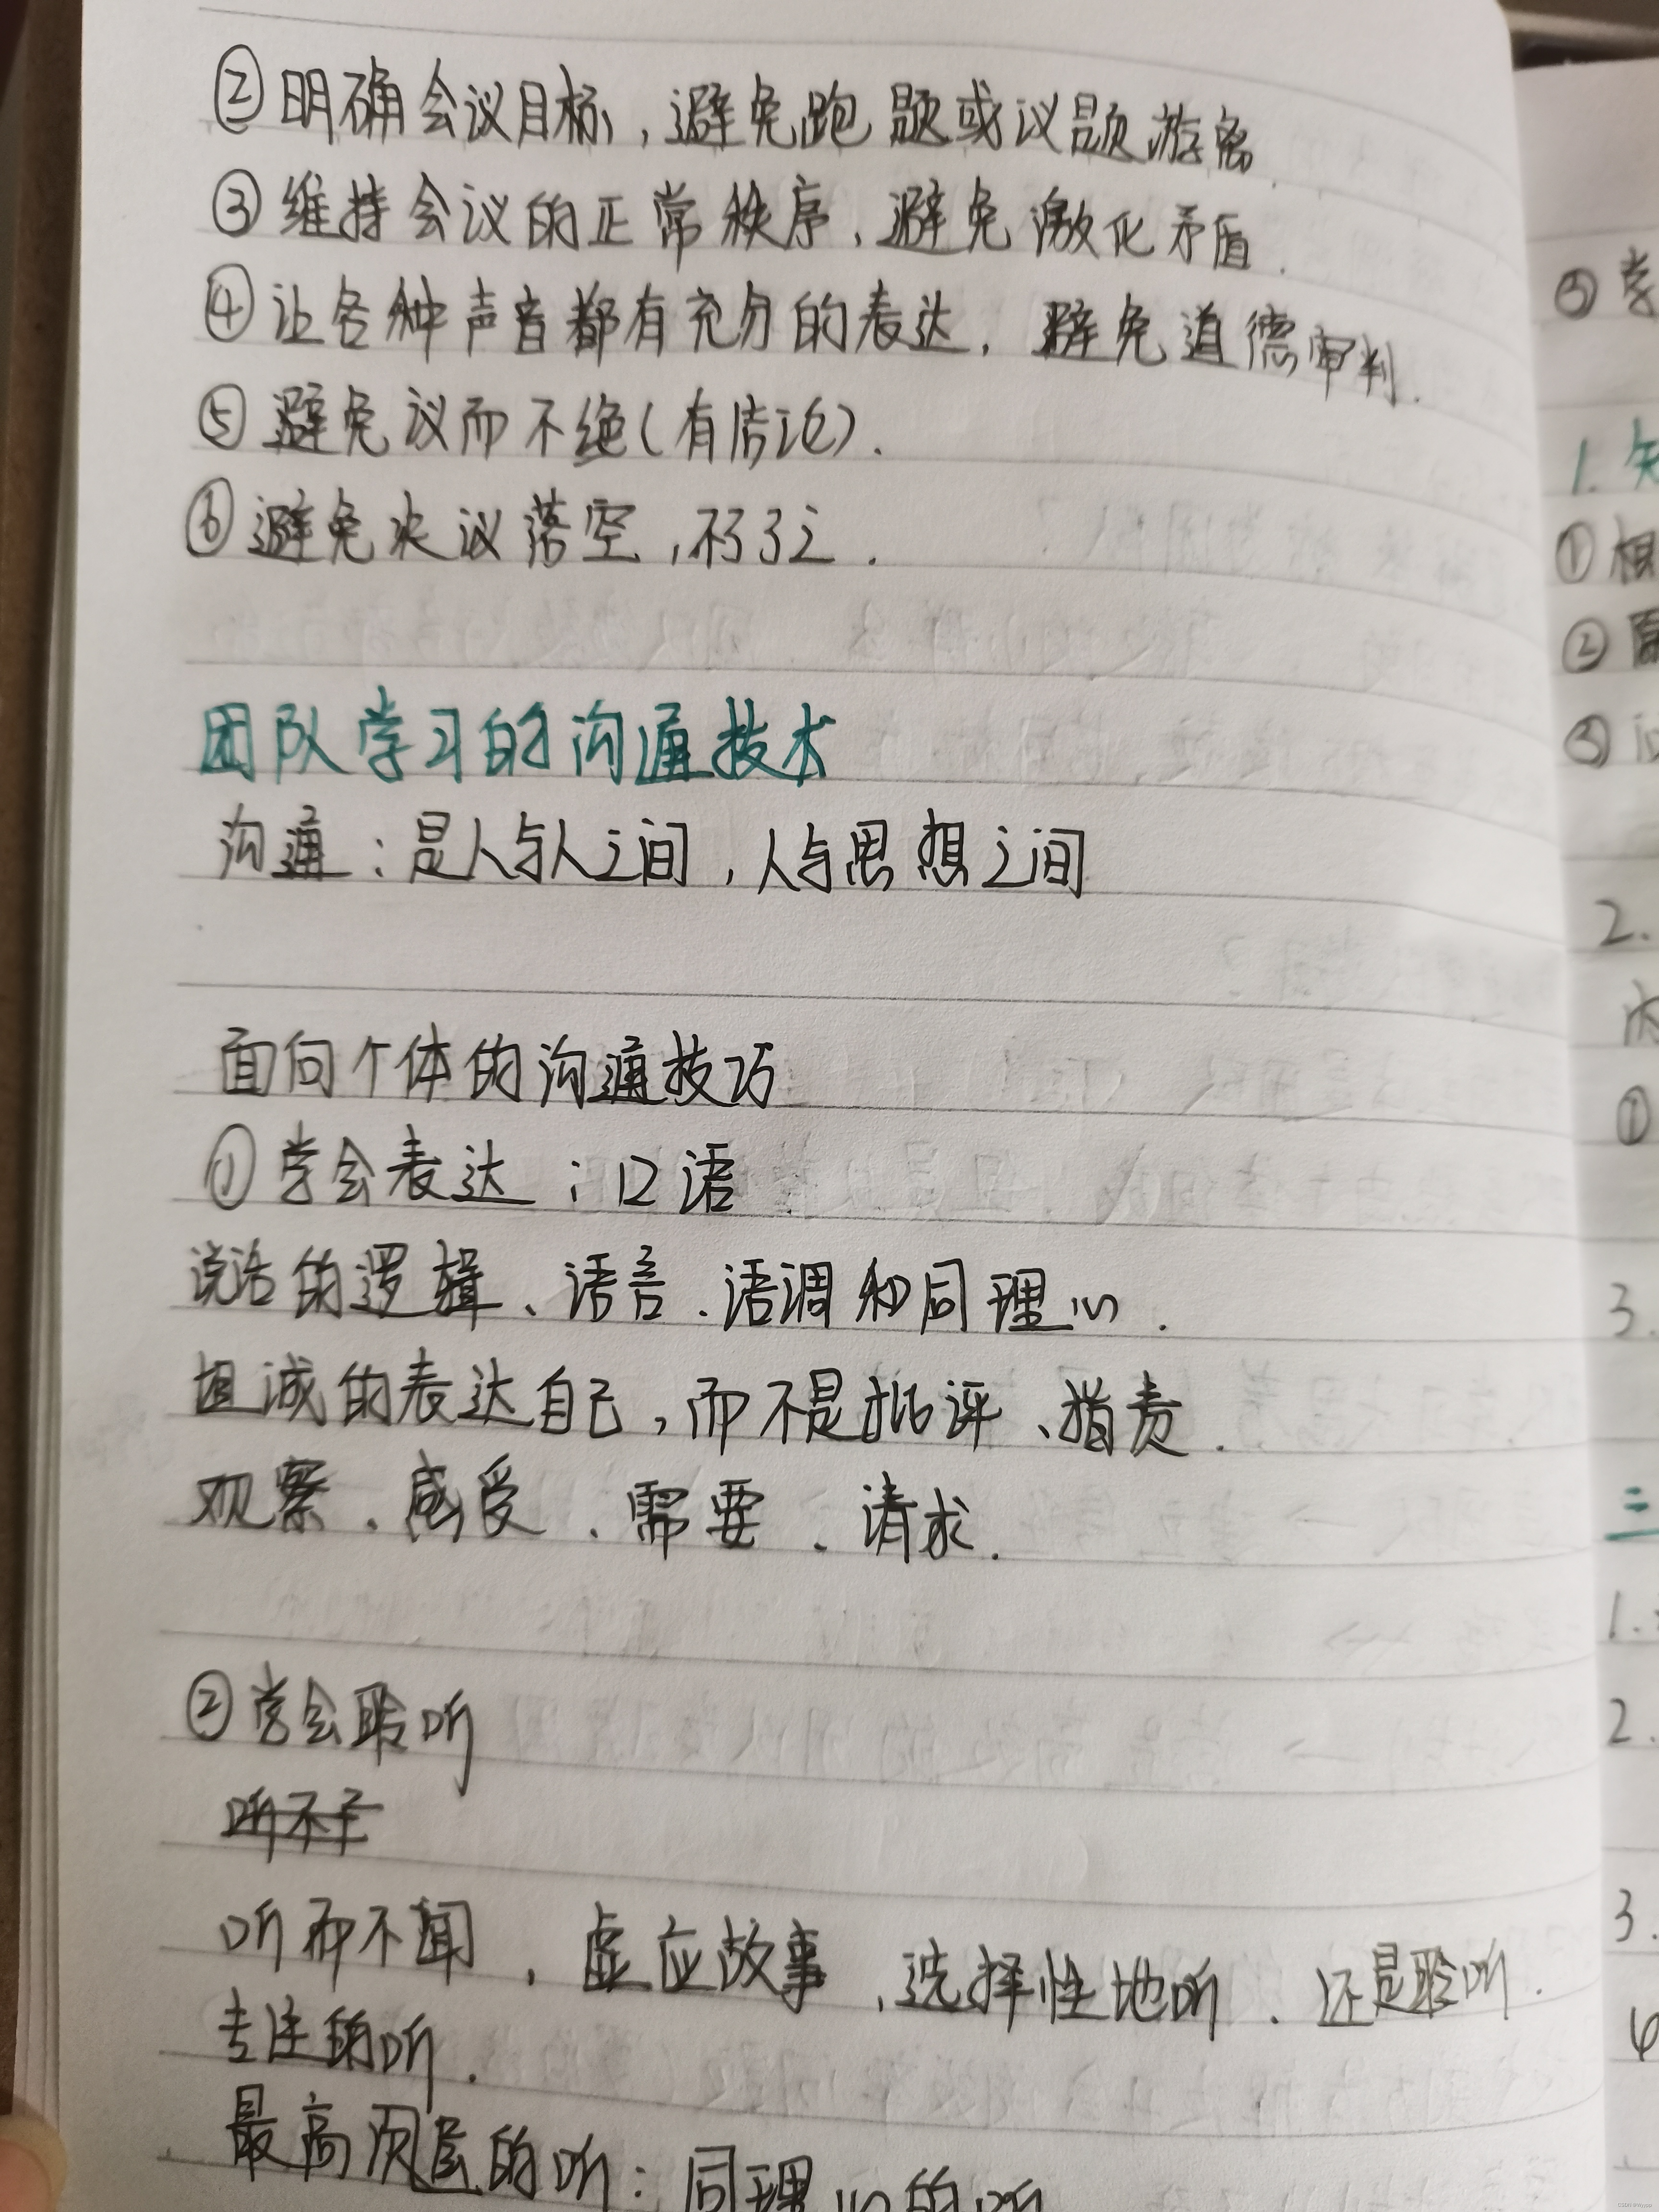 ②明确会议目标，避免跑题或议题游离
③维持会议的正常秩序，避免激化矛盾.
④让各种声音都有充分的表达，避免道德审判.
⑤避免议而不绝(有结论).
⑥避免决议落空，不了了之.
团队学习的沟通技术
沟通：是人与人之间，人与思想之间
面向个体的沟通技巧
①学会表达：口语
说话的逻辑、语言、语调和同理心.
坦诚的表达自己，而不是批评、指责.
观察、感受、需要、请求.
②学会聆听
听而不闻，虚应故事，选择性地听.还是聆听.
专注的听.
最高层的听：同理心的听
③学
1.
①根
②原
③
2.
①
3.
二
1.
2.
3.